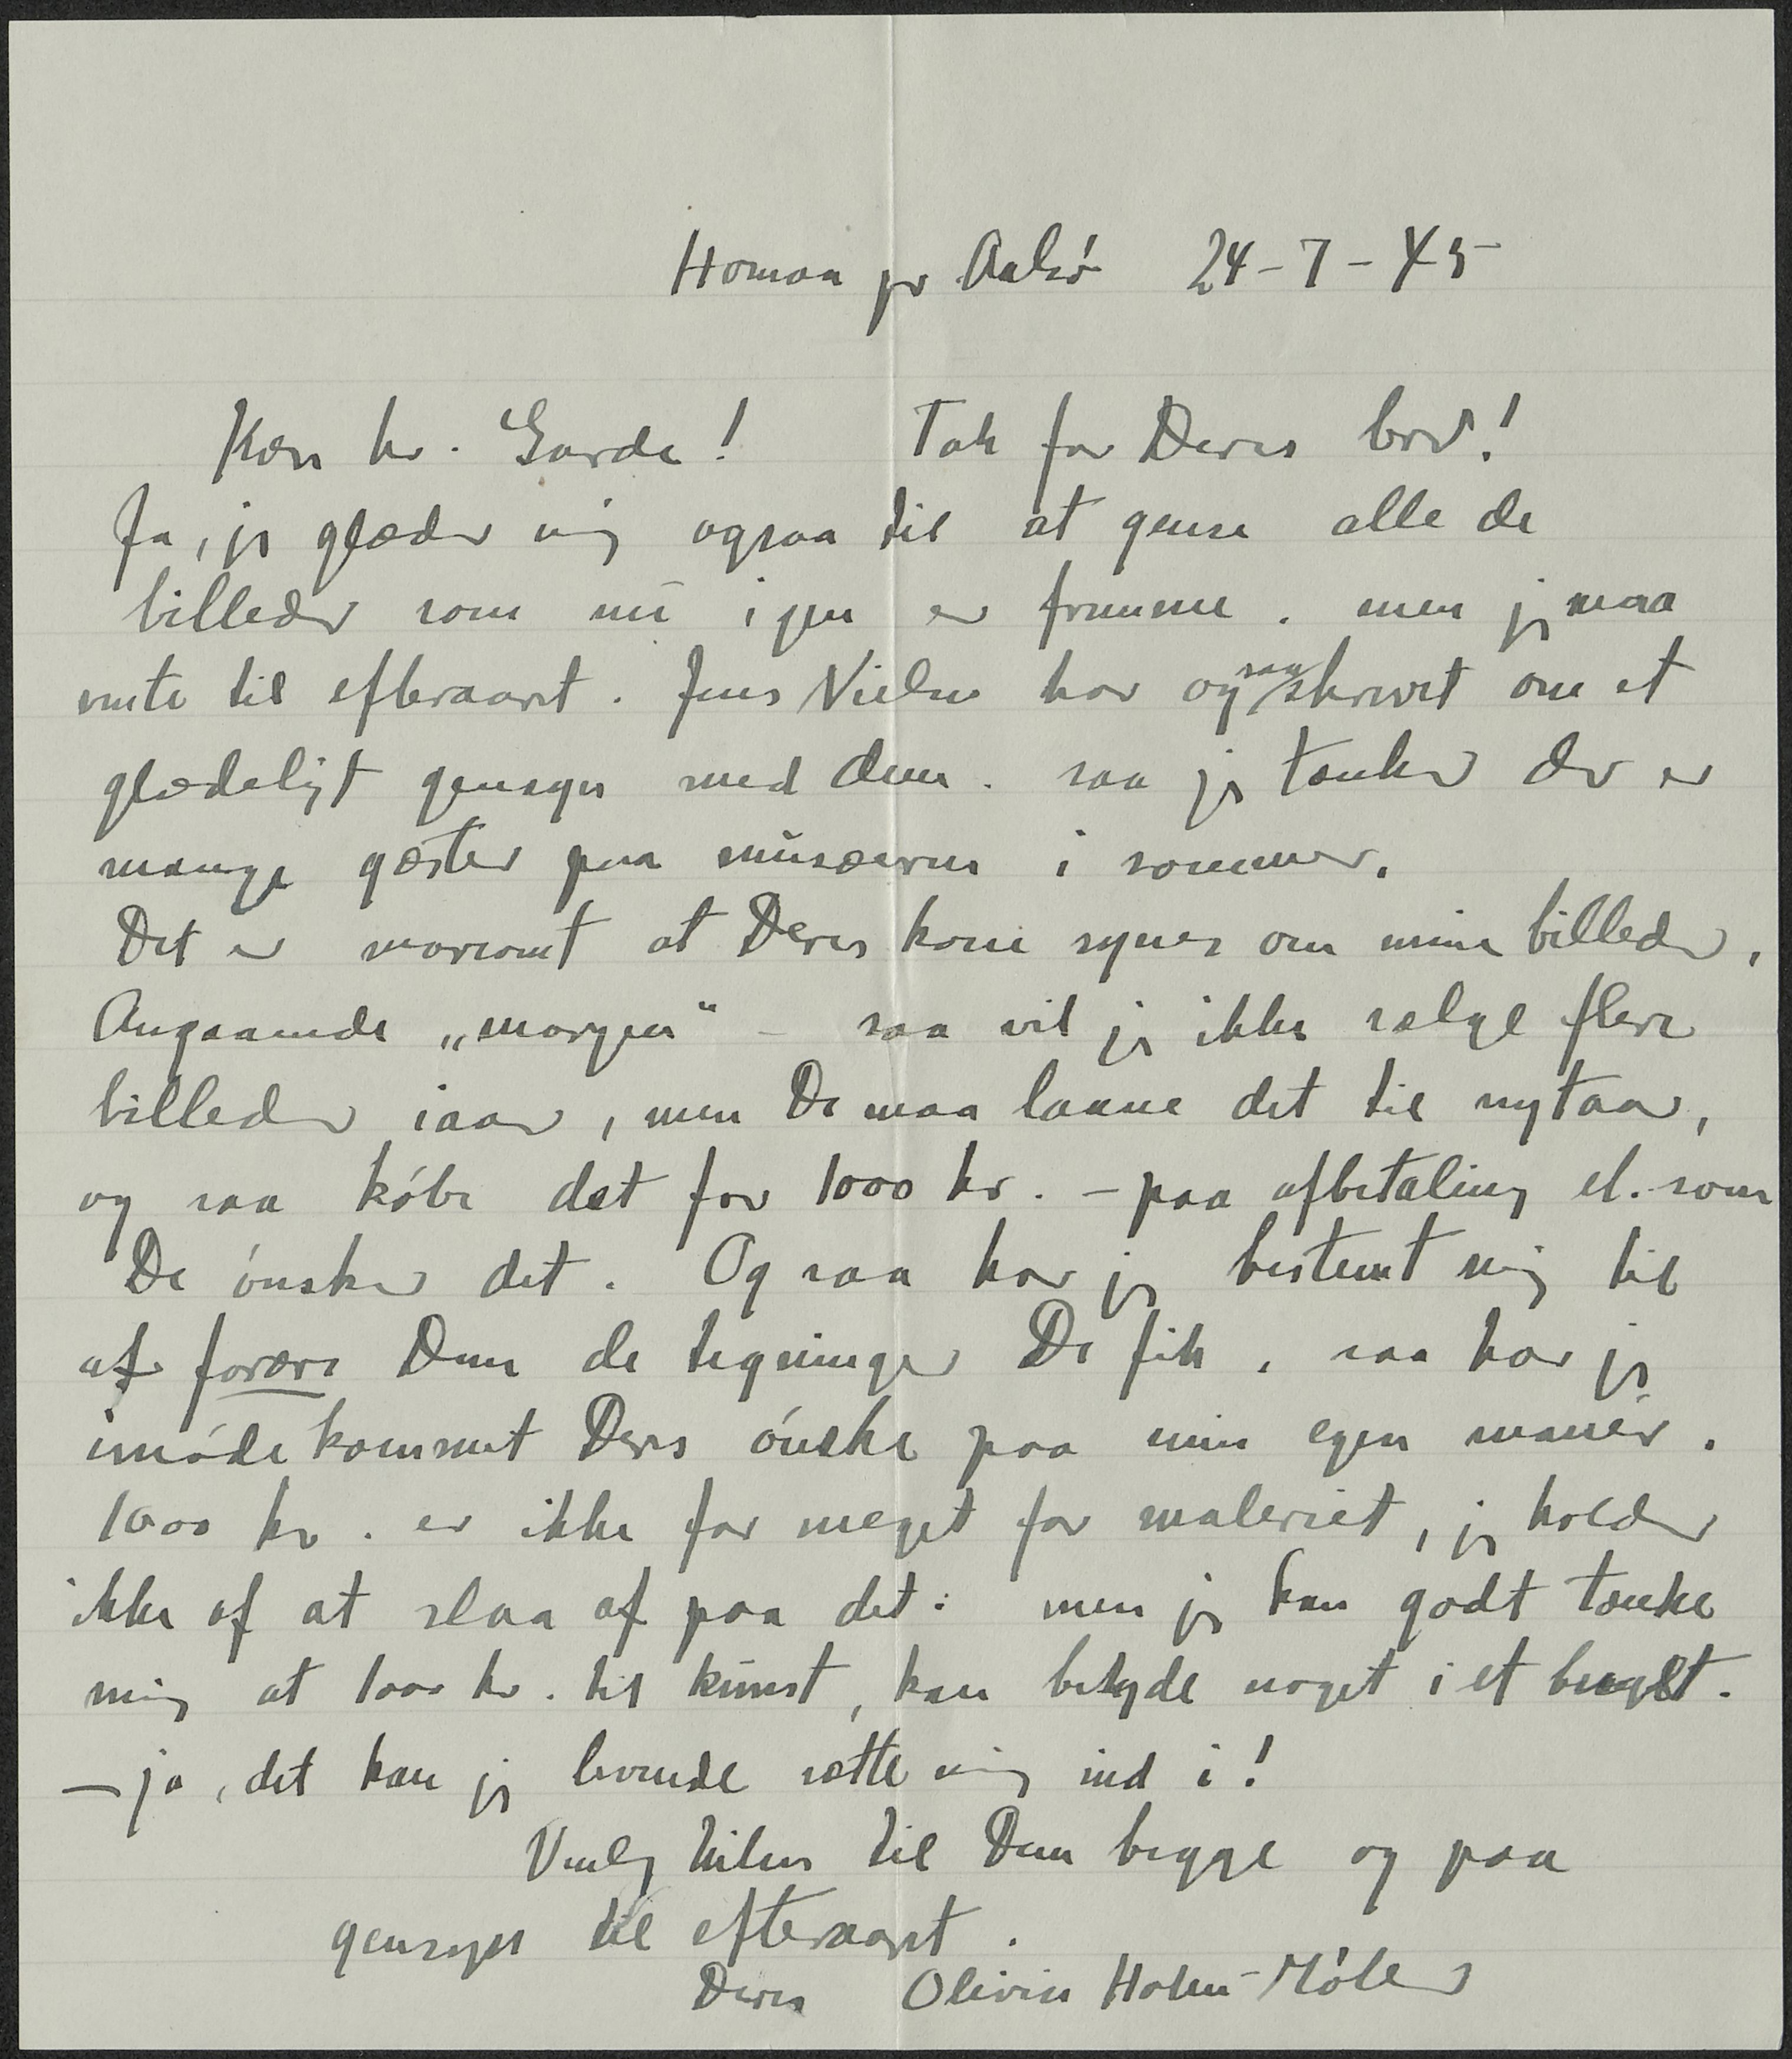 Homaa pr Aalsø 24-7-45
Kære hr. Garde! Tak for Deres brev!
Ja, jeg glæder mig ogsaa til at gense alle de
billeder som nu igen er fremme. men jeg maa
vente til efteraaret. Jens Nielsen har ogsaa skrevet om et
glædeligt gensyn med dem. saa jeg tænker der er
mange gæster paa museerne i sommer.
Det er morsomt at Deres kone synes om mine billeder.
Angaaende „morgen“ - saa vil jeg ikke sælge flere
billeder iaar, men De maa laane det til nytaar,
og saa købe det for 1000 kr. - paa afbetaling el. som
De ønsker det. Og saa har jeg bestemt mig til
at forære Dem de tegninger De fik, saa har jeg
imødekommet Deres ønske paa min egen manér.
1000 kr. er ikke for meget for maleriet, jeg holder
ikke af at slaa af paa det: men jeg kan godt tænke
mig at 1000 kr. til kunst, kan betyde noget i et budget.
- ja, det kan jeg levende sætte mig ind i!
Venlig hilsen til Dem begge og paa
gensyn til efteraaret.
Deres Olivia Holm-Møller